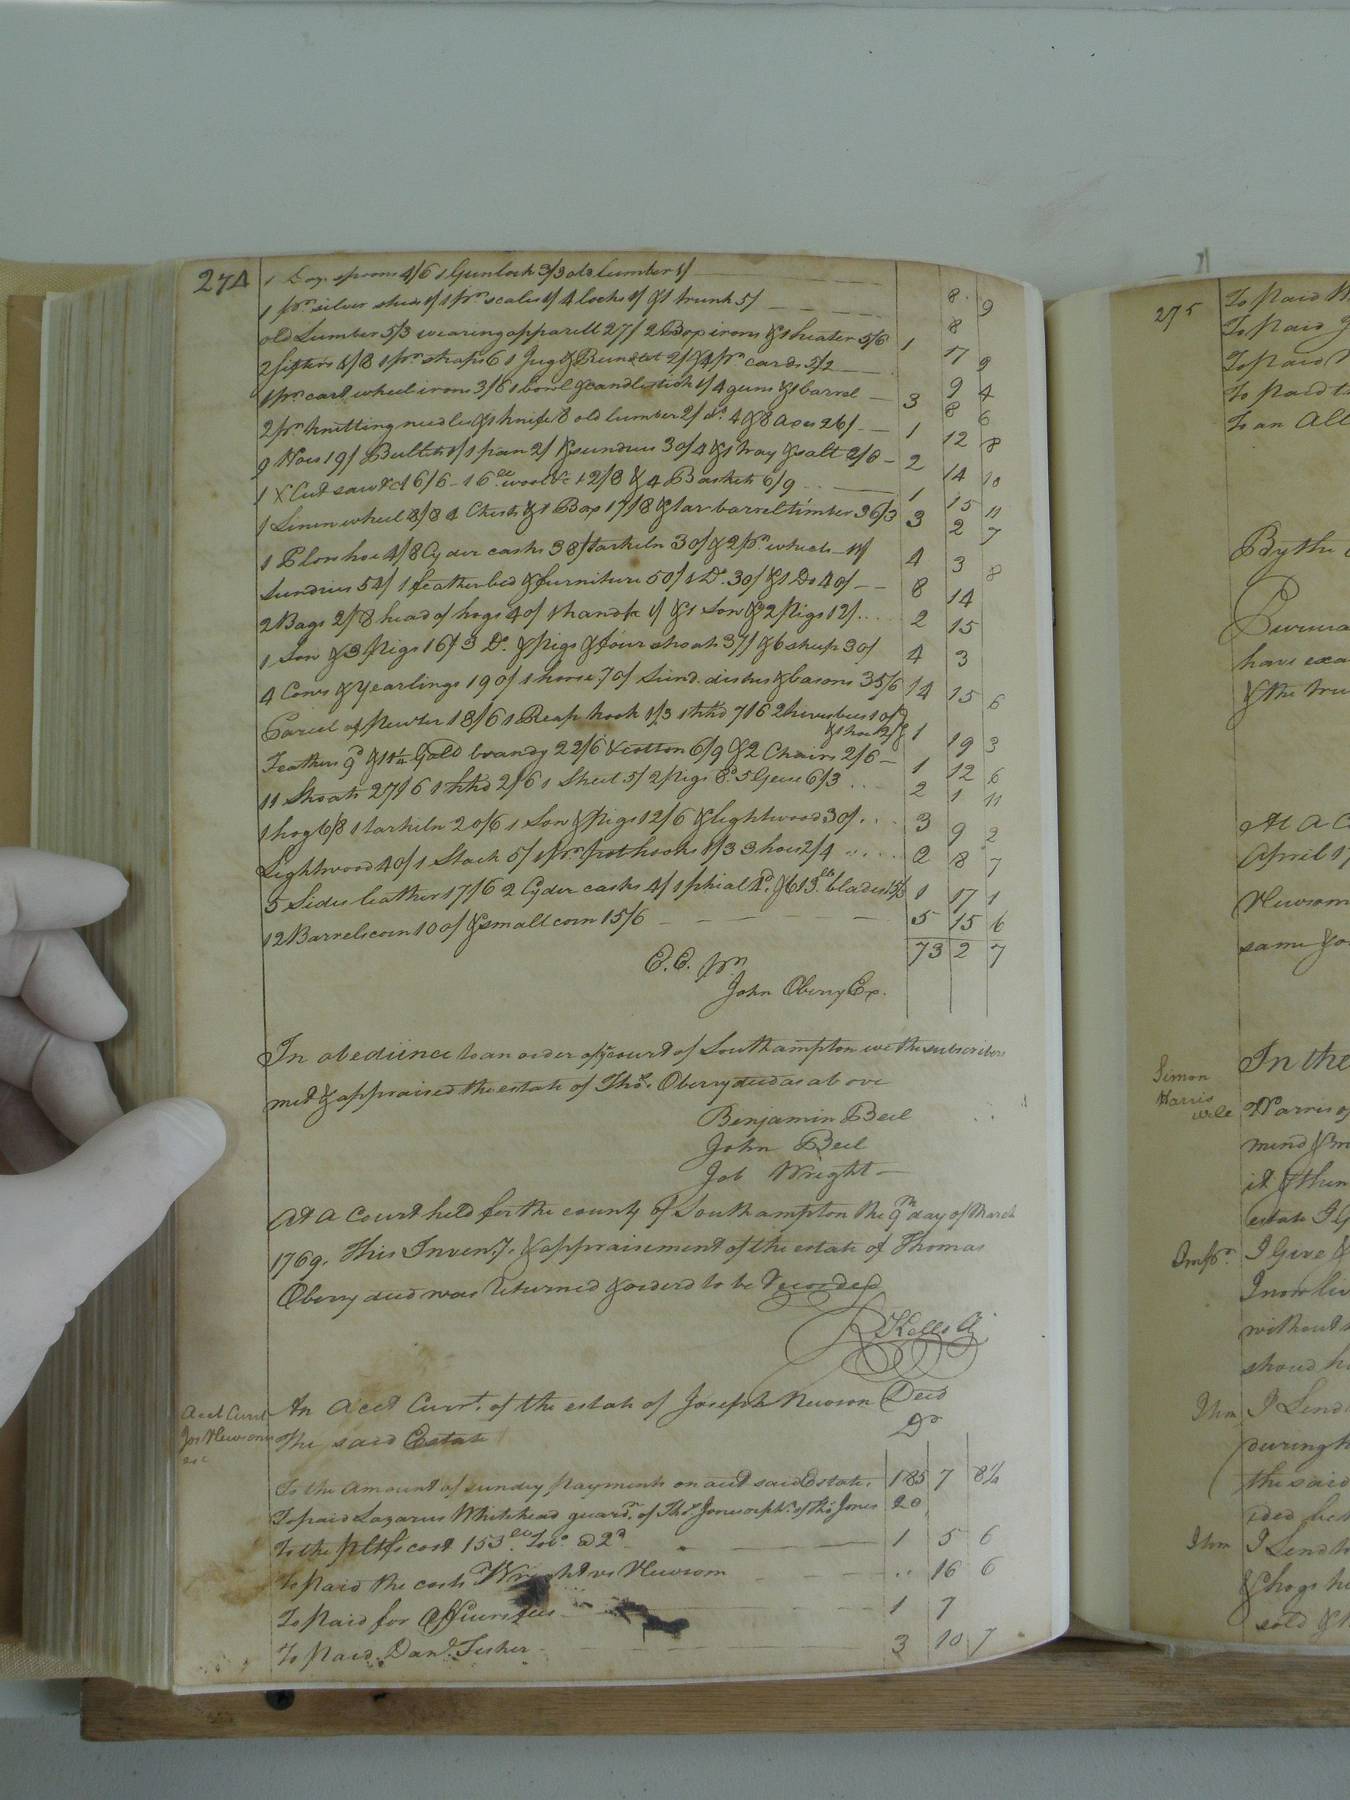 274
1 Doz. spoons 4/6 1 Gunlock 3/3 old Lumber 1/ 8 9
1 pr. silver 1/ 1 pr. scales 1/ 4 locks 1/ & 1 trunk 5/ 8
old Lumber 5/3 wearing apparell 27/ 2 Box irons & 1 heater 5/6 1 17 9
2 4/8 1 pr. straps 6 1 Jug & Rundlet 2/ & 4 pr. cards 2/2 9 4
1 pr. cart wheel irons 3/6 1 bowl & candlestick 1/ 4 guns & 1 barrel 3 8 6
2 pr. knitting needles & 1 knife 8 old lumber 2/ do. 4 & 8 Axes 26/ 1 12 8
9 Hoes 19/ 1/ 1 pan 2/ & sundries 30/4 & 1 tray & salt 2/6 2 14 10
1 X Cut saw &c 16/6 16 wool &c 12/8 & 4 Baskets 6/9 1 15 11
1 Linen wheel 8/8 4 Chests & 1 Box 17/8 & tar barrel timber 36/3 3 2 7
1 Plow hoe 4/8 Cyder casks 38/ tarkiln 30/ & 2 pr. wheels 11/ 4 3 8
Sundries 54/ 1 feather bed & furniture 50/ 1 Do. 30/ & 1 Do 40/ 8 14
2 Bags 2/ 8 head of hogs 40/ 1 hand 1/ & 1 Sow & 2 Pigs 12/ 2 15
1 Sow & 3 Pigs 16/ 3 Do. & Pigs & four shoats 37/ & 6 sheep 30/ 4 3
4 Cows & Yearlings 190/ 1 horse 70/ Sund. dishes & basons 35/6 14 15 6
Parcel of Pewter 18/6 1 Reap hook 1/3 1 hhd 7/6 2 hives bees 10/
& 1 hoe 2/ 1 19 3
Feathers 9d & 11 1/4 Galls brandy 22/6 & cotton 6/9 & 2 Chairs 2/6 1 12 6
11 Shoats 27/6 1 hhd 2/6 1 Sheet 5/ 2 Pigs 8d 5 Geese 6/3 2 1 11
1 hog 6/8 1 tarkiln 20/6 1 Sow & Pigs 12/6 & lightwood 30/ 3 9 2
Lightwood 40/ 1 Stack 5/ 1 pr. pothooks 1/3 3 hoes 2/4 2 8 7
5 Sides leather 17/6 2 Cyder casks 4/ 1 phial 4d. & 613 lb blades 15/3 1 17 1
12 Barrels corn 100/ & small corn 15/6 5 15 6
73 2 7
E.E. pr
John Oberry Ex.
In obedience to an order of ye court of Southampton we the subscribers
met & appraised the estate of Thos. Oberry deced as above
Benjamin Beel
John Beel
Job Wright
At A Court held for the county of Southampton the 9th day of March
1769. This Inveny. & appraisement of the estate of Thomas
Oberry deced was returned & orderd to be Recorded
R Kello Cl
An Acct Currt. of the estate of Joseph Newsom Deced
Acct Currt
Jos Newsoms
est
The said Estate Dr
To the amount of sundry payments on acct said Estate. 185 7 8 1/2
To paid Lazarus Whitehead guardn. of Thos. Jones orph. of Thos Jones 20
To the pltfs cost 153 lb Tobo. @ 2d 1 5 6
To paid the costs Wright vs Newsom 16 6
To paid for Officers fees 1 7
To paid Danl. Fisher 3 10 7
275
To paid
To paid
To paid
To paid
To an All
By the
Pursua
have exa
& the
At A C
April 17
Newsom
same & o
Simon
Harris
will
In the
Harris of
mind &
it & then
estate I
Impr.
I Give &
I now liv
without
shoud h
Itm
I Lend
during h
the said
ided bet
Itm
I Lend to
& hogs h
sold &